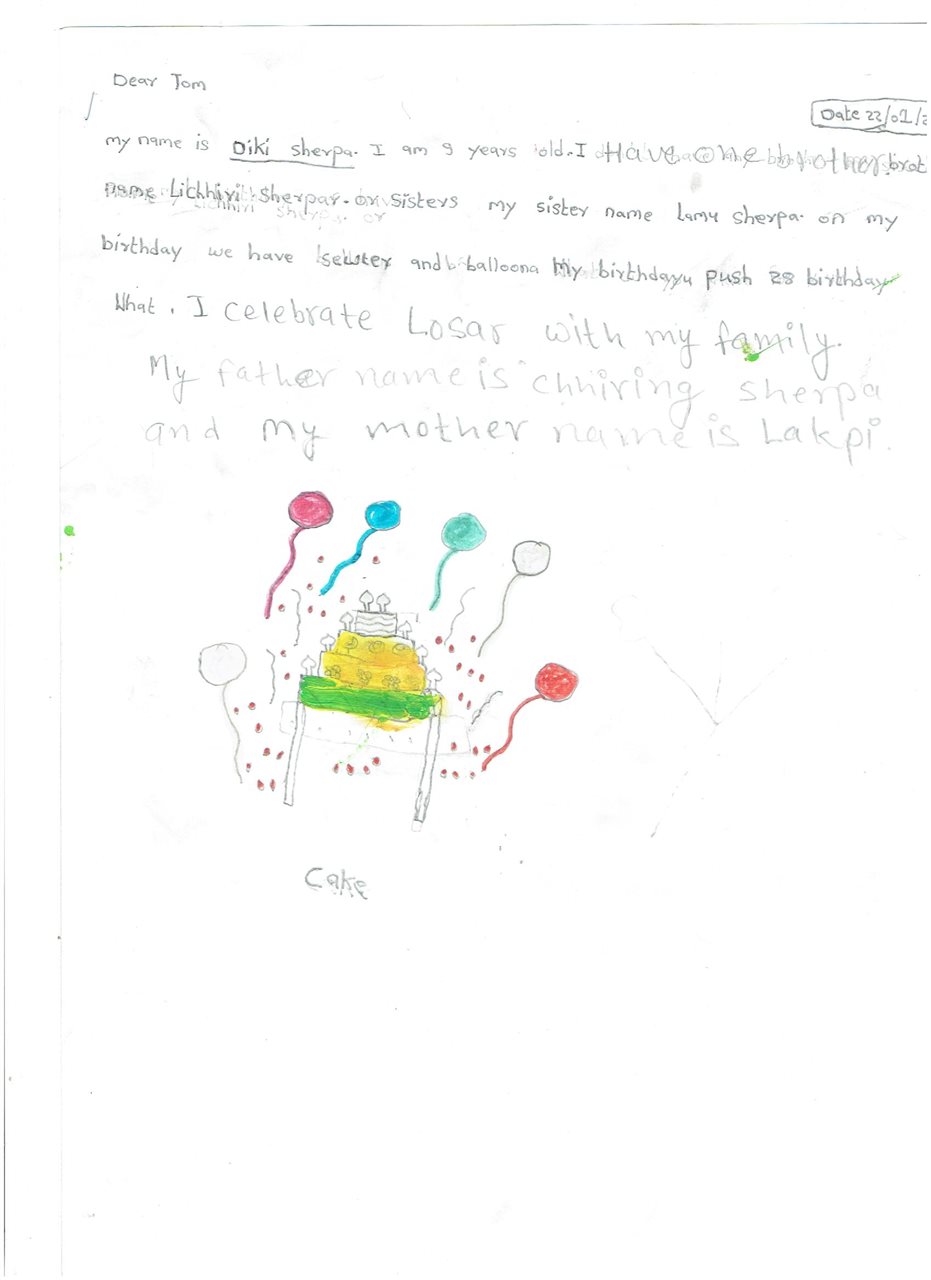 Dear Tom
Date 22/01/2
my name is Diki sherpa. I am 9 years old. I Have One brother brot
name Lichhiri Sherpar. or Sisters my sister name Lamu sherpa. on my
birthday we have and balloona My birthdayyu push 28 birthday
What. I celebrate Losar with my family.
My father name is chhiring sherpa
and my mother name is Lakpi.
Cake